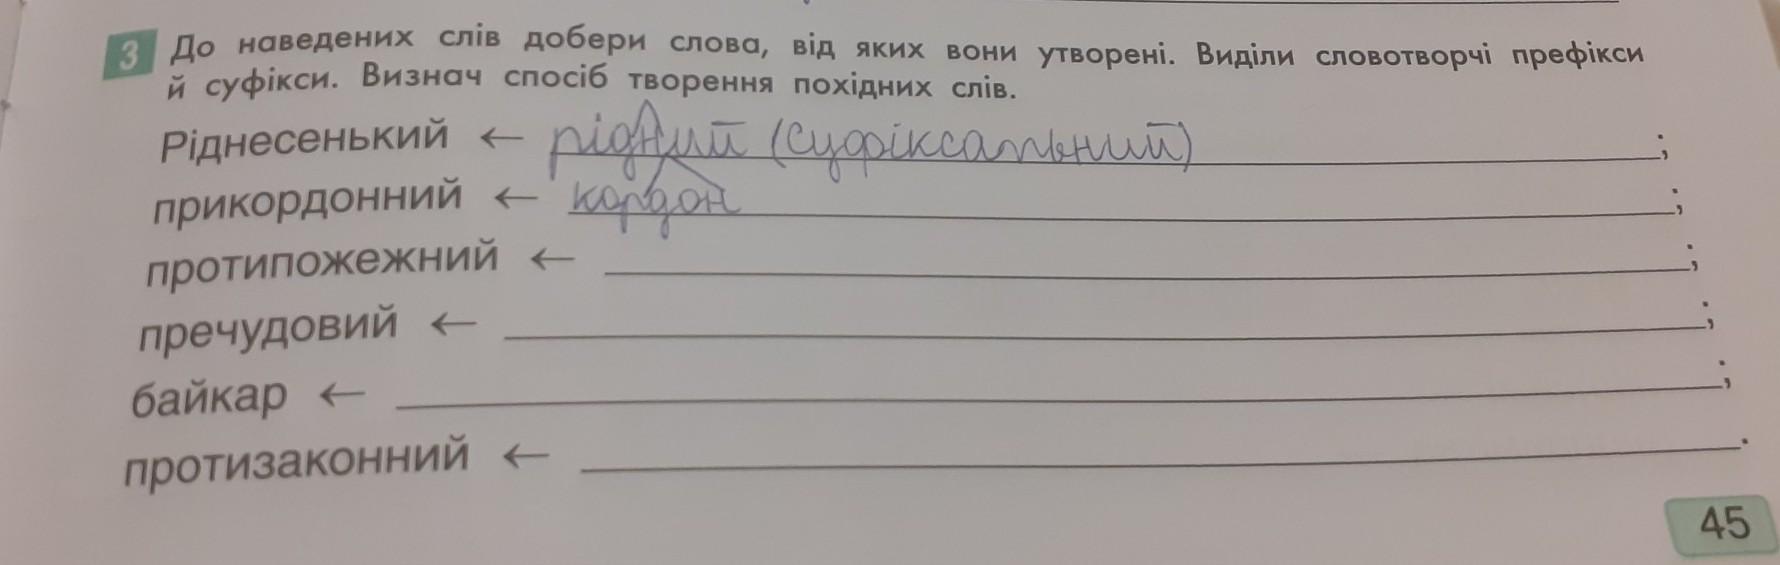 3 До наведених слів добери слова, від яких вони утворені. Виділи словотворчі префікси
й суфікси. Визнач спосіб творення похідних слів.
Ріднесенький ← рідний (суфіксальний) ;
прикордонний ← кордон ;
протипожежний ← ;
пречудовий ← ;
байкар ← ;
протизаконний ← .
45